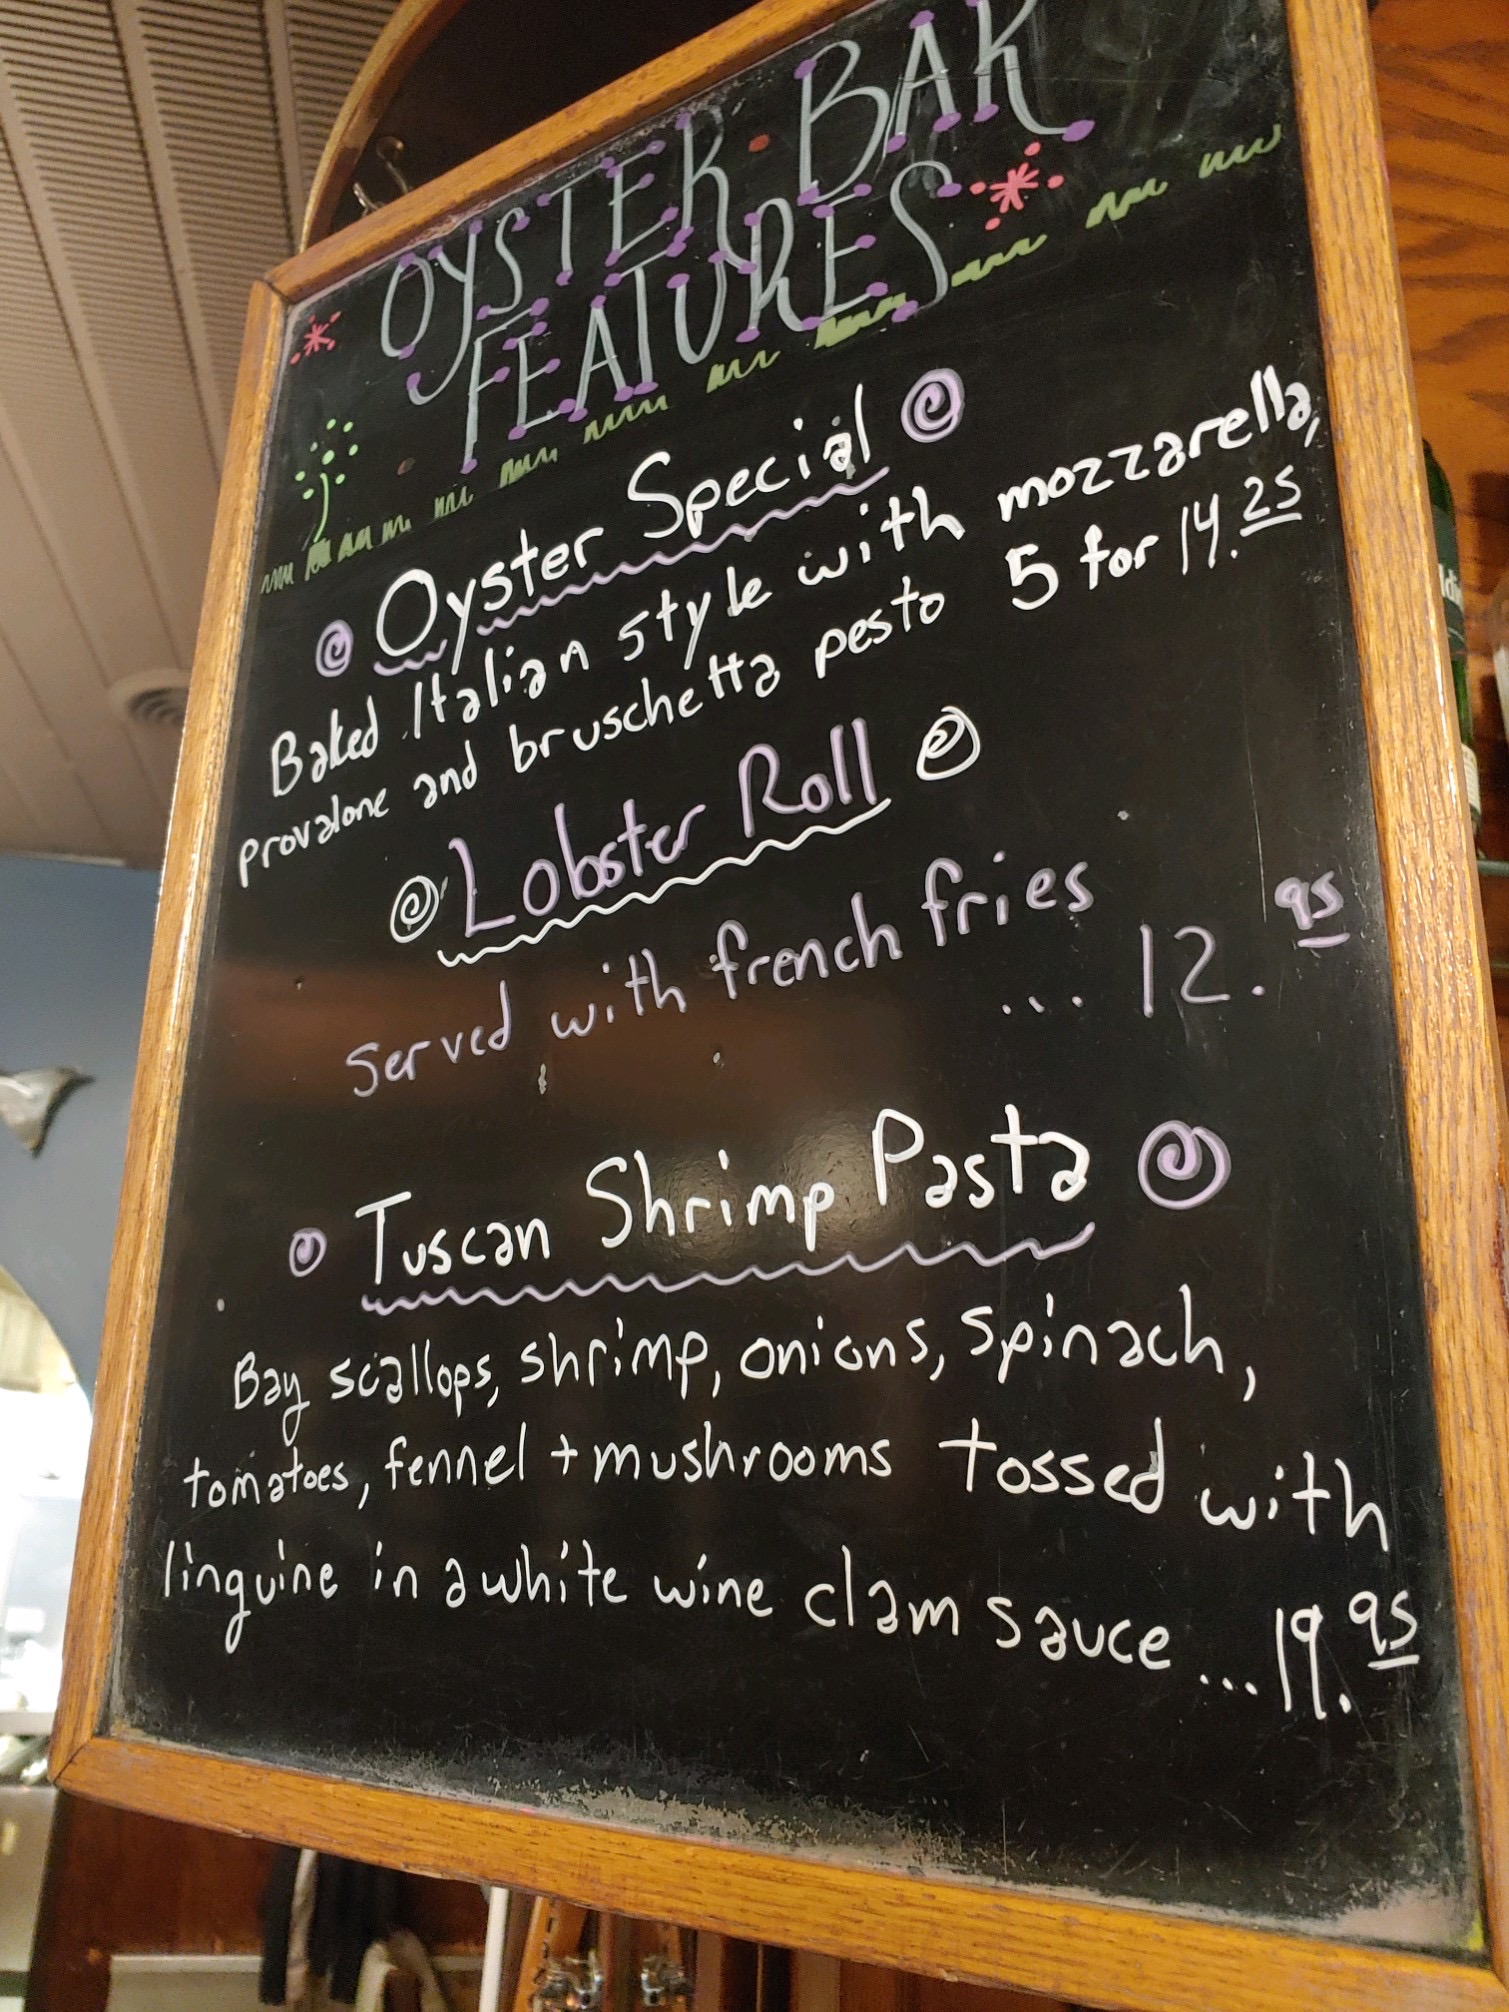 OYSTER • BAR
FEATURES
Oyster Special
Baked Italian style with mozzarella,
provalone and bruschetta pesto 5 for 14.25
Lobster Roll
served with french fries
... 12.95
Tuscan Shrimp Pasta
Bay scallops, shrimp, onions, spinach,
tomatoes, fennel + mushrooms tossed with
linguine in a white wine clam sauce ... 19.95